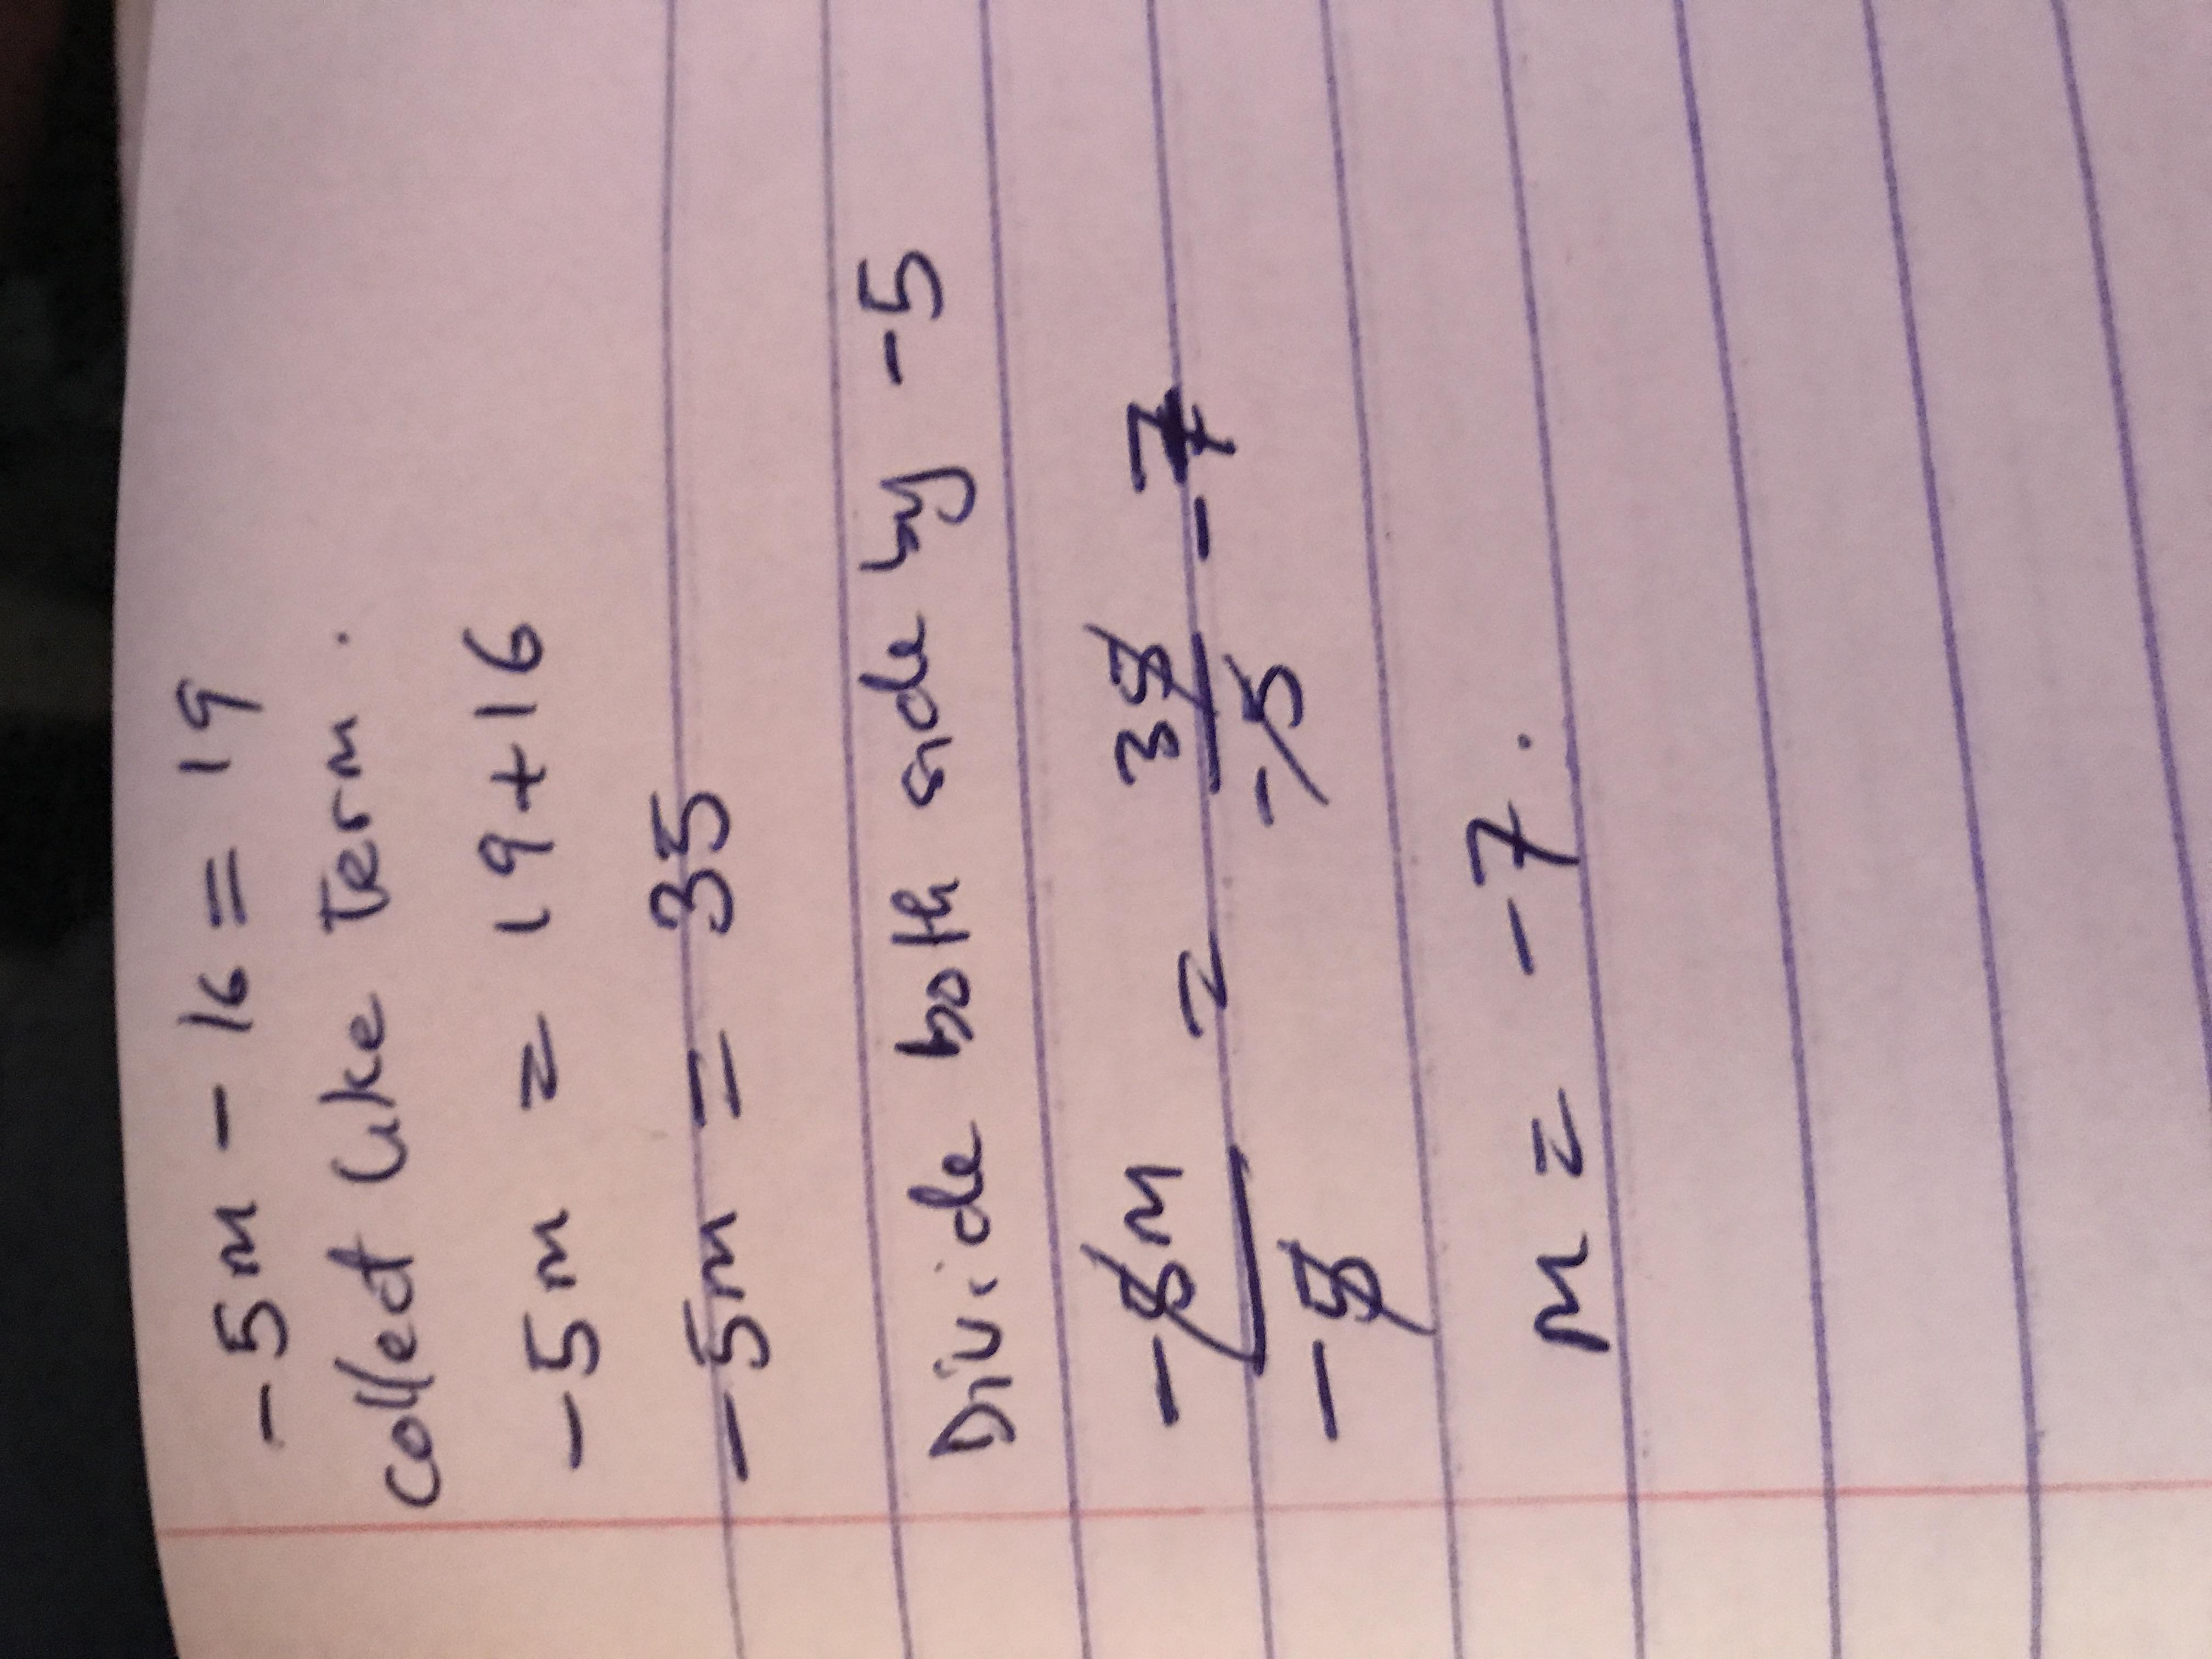 -5m - 16 = 19
collect like Term.
-5m = 19+16
-5m = 35
Divide both side by -5
-5m/-5 = 35/-5 -7
m = -7.